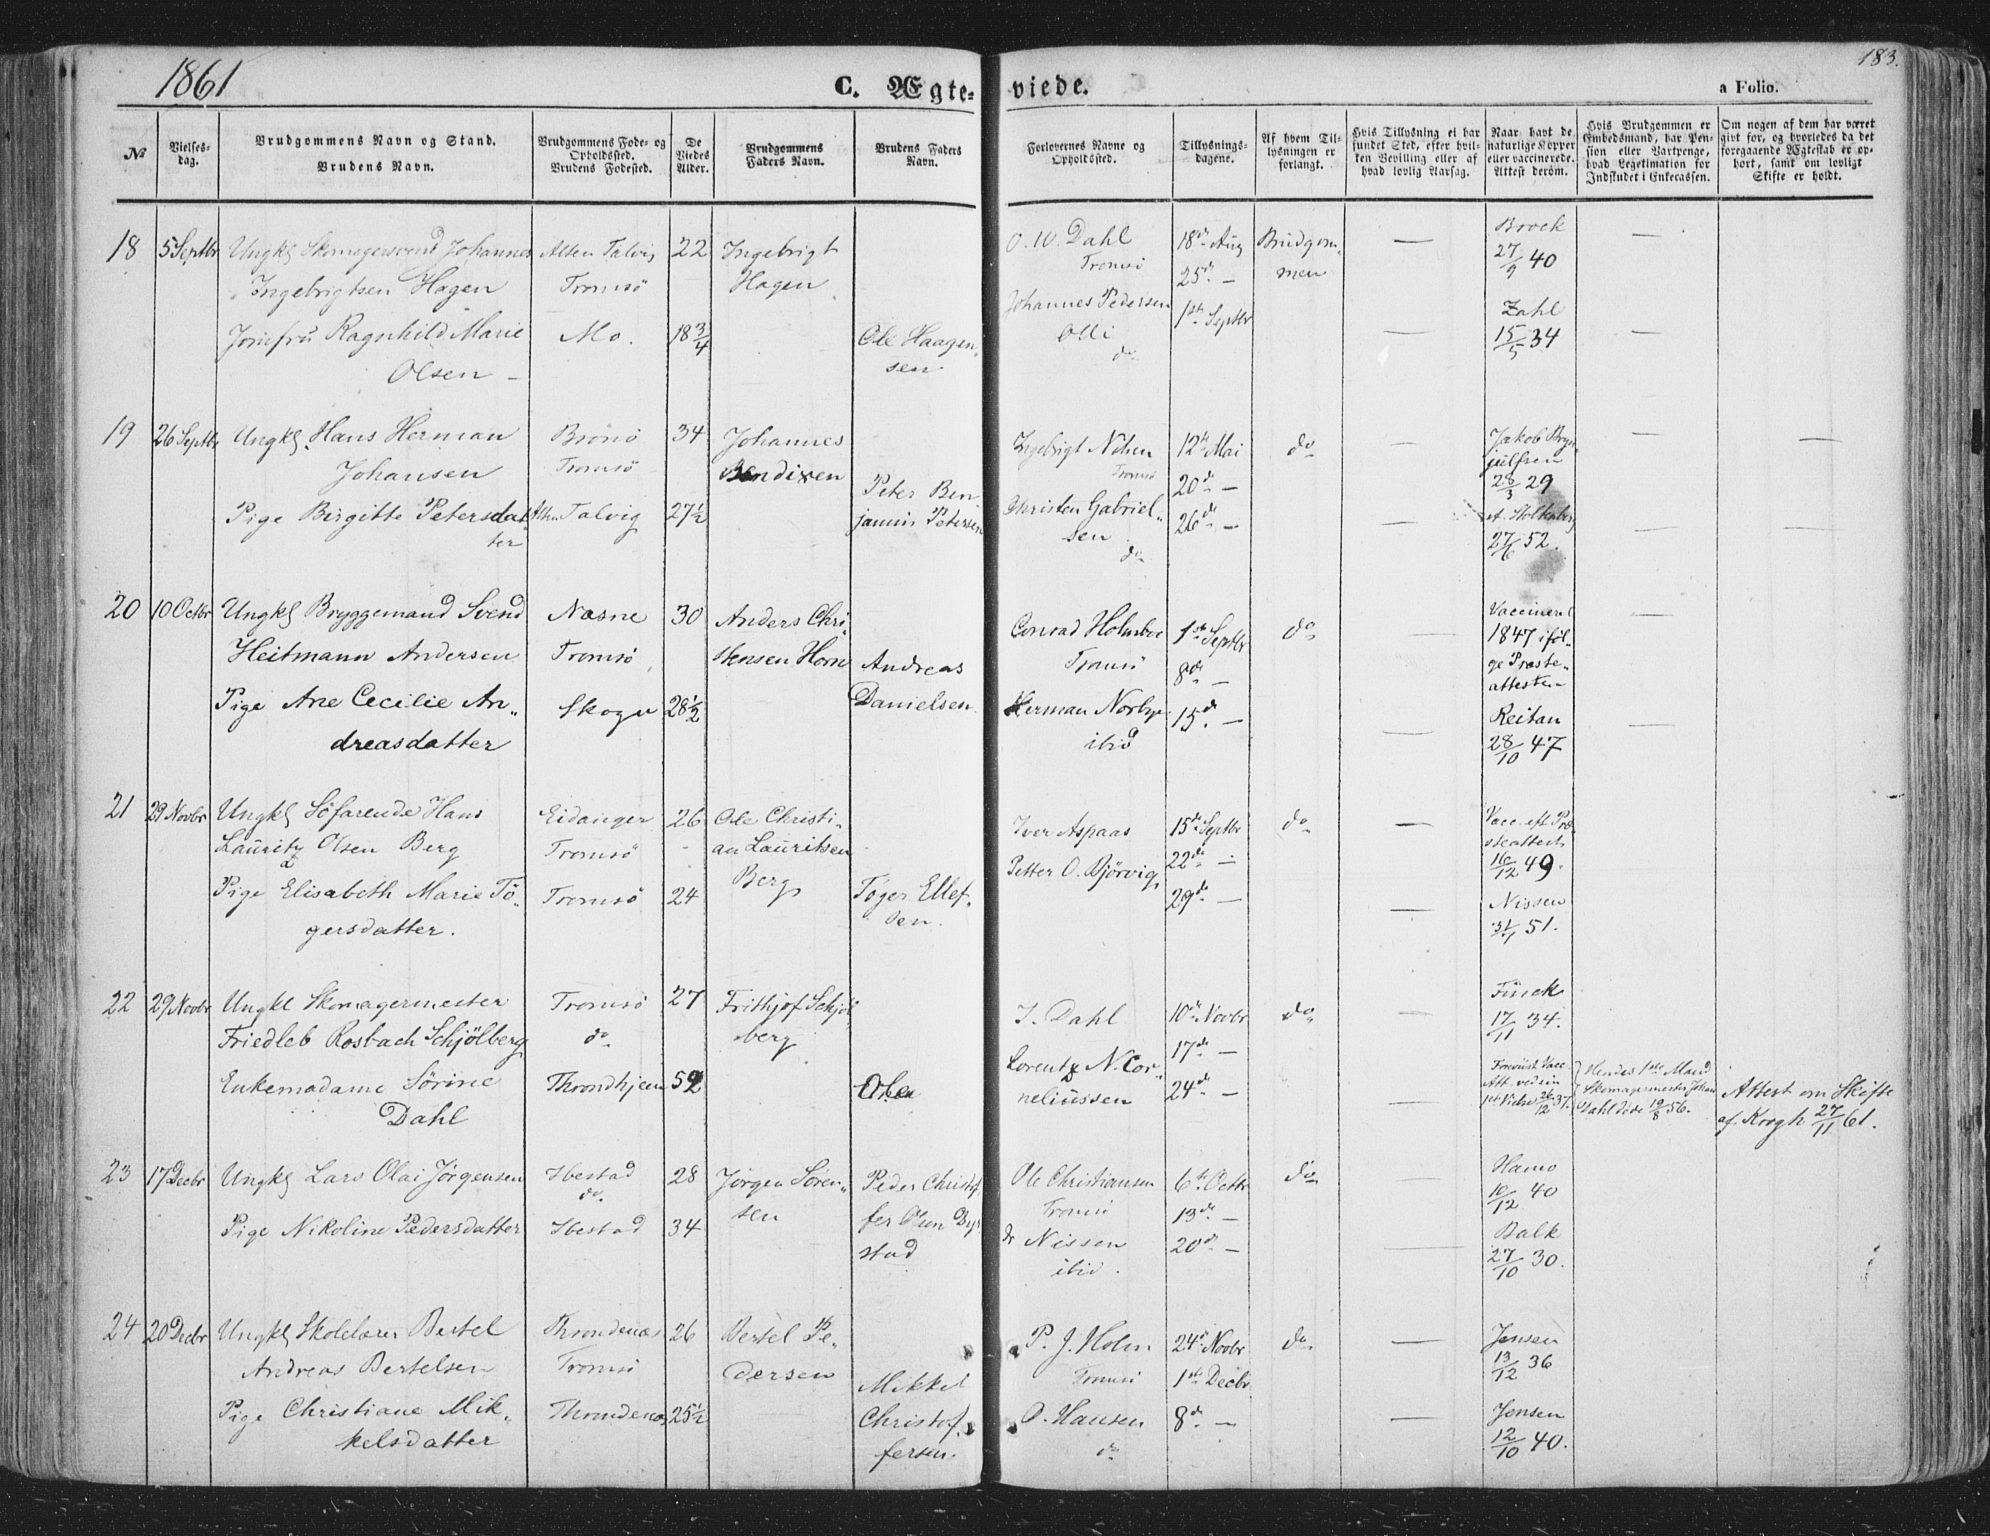 1861
C. Ægte-
viede.
a Folio.
183.
No
Vielses-
dag.
Brudgommens Navn og Stand.
Brudens Navn.
Brudgommens Føde- og
Opholdssted.
Brudens Fødested.
De
Viedes
Alder.
Brudgommens
Faders Navn.
Brudens Faders
Navn.
Forlovernes Navne og
Opholdssted.
Tillysnings-
dagene.
Af hvem Til-
lysningen er
forlangt.
Hvis Tillysning ei har
fundet Sted, efter hvil-
ken Bevilling eller af
hvad lovlig Aarsag.
Naar havt de
naturlige Kopper
eller vaccinerede.
Attest derom.
Hvis Brudgommen er
Embedsmand, har Pen-
sion eller Vartpenge,
hvad Legitimation for
Indskudet i Enkecassen.
Om nogen af dem har været
givt før, og hvorledes da det
foregaaende Ægteskab er op-
hørt, samt om lovligt
Skifte er holdt.
18
5 Septbr
Ungkl Skomagersvend Johannes
Ingebrigtsen Hagen
Jomfru Ragnhild Marie
Olsen
Alten Talvig
Tromsö
Mo.
22
18 3/4
Ingebrigt
Hagen
Ole Haagen-
sen
O. W. Dahl
Tromsö
Johannes Pedersen
Olli
do
18de Aug
25de —
1ste Septbr
Brudgom-
men
Brock
27/9 40
Zahl
15/5 34
19
26 Septbr
Ungkl. Hans Herman
Johansen
Pige Birgitte Petersdat
ter
Brönö
Tromsö
Alten Talvig
34
27½
Johannes
Bendixen
Peter Ben
jamin Petersen
Ingebrigt Nilsen
Tromsö
Christen Gabriel-
sen
do
12te Mai
20de —
26de —
do
Jakob Bryn
julfsen
28/3 29
af Stoltenberg
27/6 52.
20
10 Octbr
Ungkl Bryggemand Svend
Heitmann Andersen
Pige Ane Cecilie An-
dreasdatter
Næsne
Tromsö
Skogn
30
28½
Anders Chri-
stensen Horn
Andreas
Danielsen
Conrad Holmboe
Tromsö
Herman Norbye
ibid
1ste Septbr
8de —
15de —
do
Vaccineret
1847 iföl-
ge Præste-
attesten
Reitan
28/10 47
21
29 Novbr
Ungkl Söfarende Hans
Lauritz Olsen Berg
Pige Elisabeth Marie Tö-
gersdatter.
Eidanger
Tromsö
Tromsö
26
24
Ole Christi-
an Lauritsen
Berg
Töger Ellef-
sen.
Iver Aspaas
Petter O. Bjørvig
15de Septbr
22de —
29de —
do
Vacc. eft Præ-
steattest
16/12 49.
Nissen
31/1 51.
22
29 Novbr
Ungkl Skomagermester
Friedleb Rosbach Schjölberg
Enkemadame Sörine
Dahl
Tromsö
do
Throndhjem
27
52
Frithjof Schjöl
berg
Ole
J. Dahl
Lorentz N. Cor-
neliussen
10de Novbr
17de —
24de —
do
17/11 34.
Forevist Vacc
Att. ved sin
1ste Vielse 26/12 37.
Hendes 1ste Mand
Skomagermester Johan
Dahl döde 19/8 56.
Attest om Skifte
af Krogh 27/11 61.
23
17 Decbr
Ungkl Lars Olai Jørgensen
Pige Nikoline Pedersdatter
Ibestad
do.
Ibestad
28
34
Jørgen Sören-
sen
Peder Christof
fer Olsen Byg
stad
Ole Christiansen
Tromsö
Nissen
ibid.
6te Octbr
13de —
20de —
do
10/12 40
Balk
27/10 30.
24
20 Decbr
Ungkl Skolelærer Bertel
Andreas Bertelsen
Pige Christiane Mik-
kelsdatter
Throndenæs
Tromsö
Throndenæs
26
25½
Bertel Pe-
dersen
Mikkel
Christof-
fersen
P. J. Holm
Tromsö
O. Hansen
do
24de Novbr
1ste Decbr
8de —
do
Jensen
13/12 36
Jensen
12/10 40.